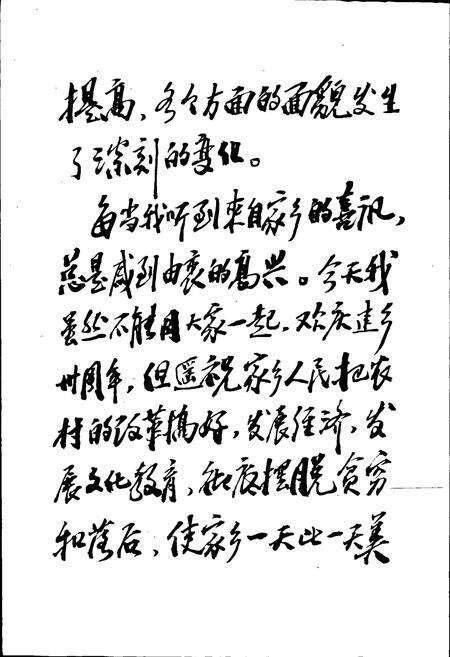 提高，各个方面的面貌发生
了深刻的变化。
每当我听到来自家乡的喜讯，
总是感到由衷的高兴。今天我
虽然不能同大家一起，欢庆建乡
卅周年，但遥祝家乡人民把农
村的改革搞好，发展经济，发
展文化教育，彻底摆脱贫穷
和落后，使家乡一天比一天美